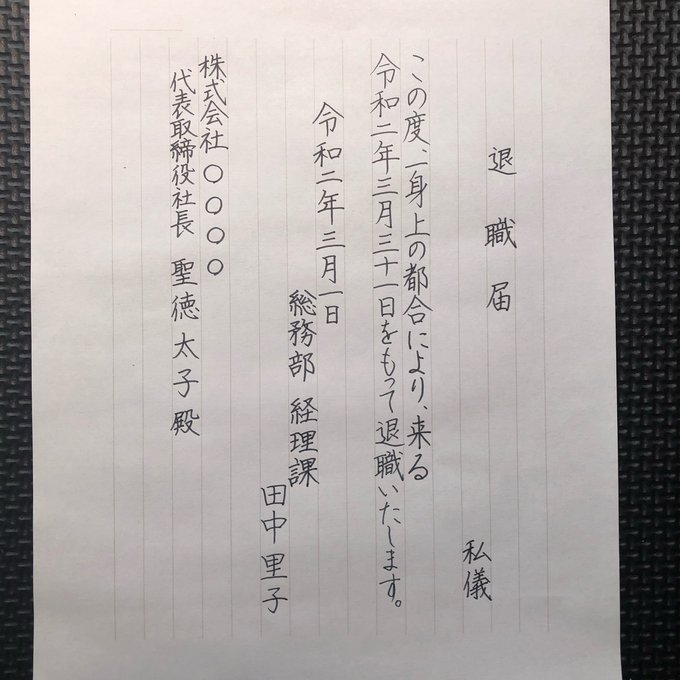 退職届
私儀
この度、一身上の都合により、来る
令和二年三月三十一日をもって退職いたします。
令和二年三月一日
総務部 経理課
田中里子
株式会社 〇〇〇〇
代表取締役社長 聖徳太子殿